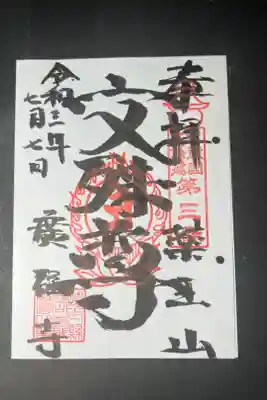 奉拝
藥王山
第三
文殊尊
令和三年
七月七日
廣福寺